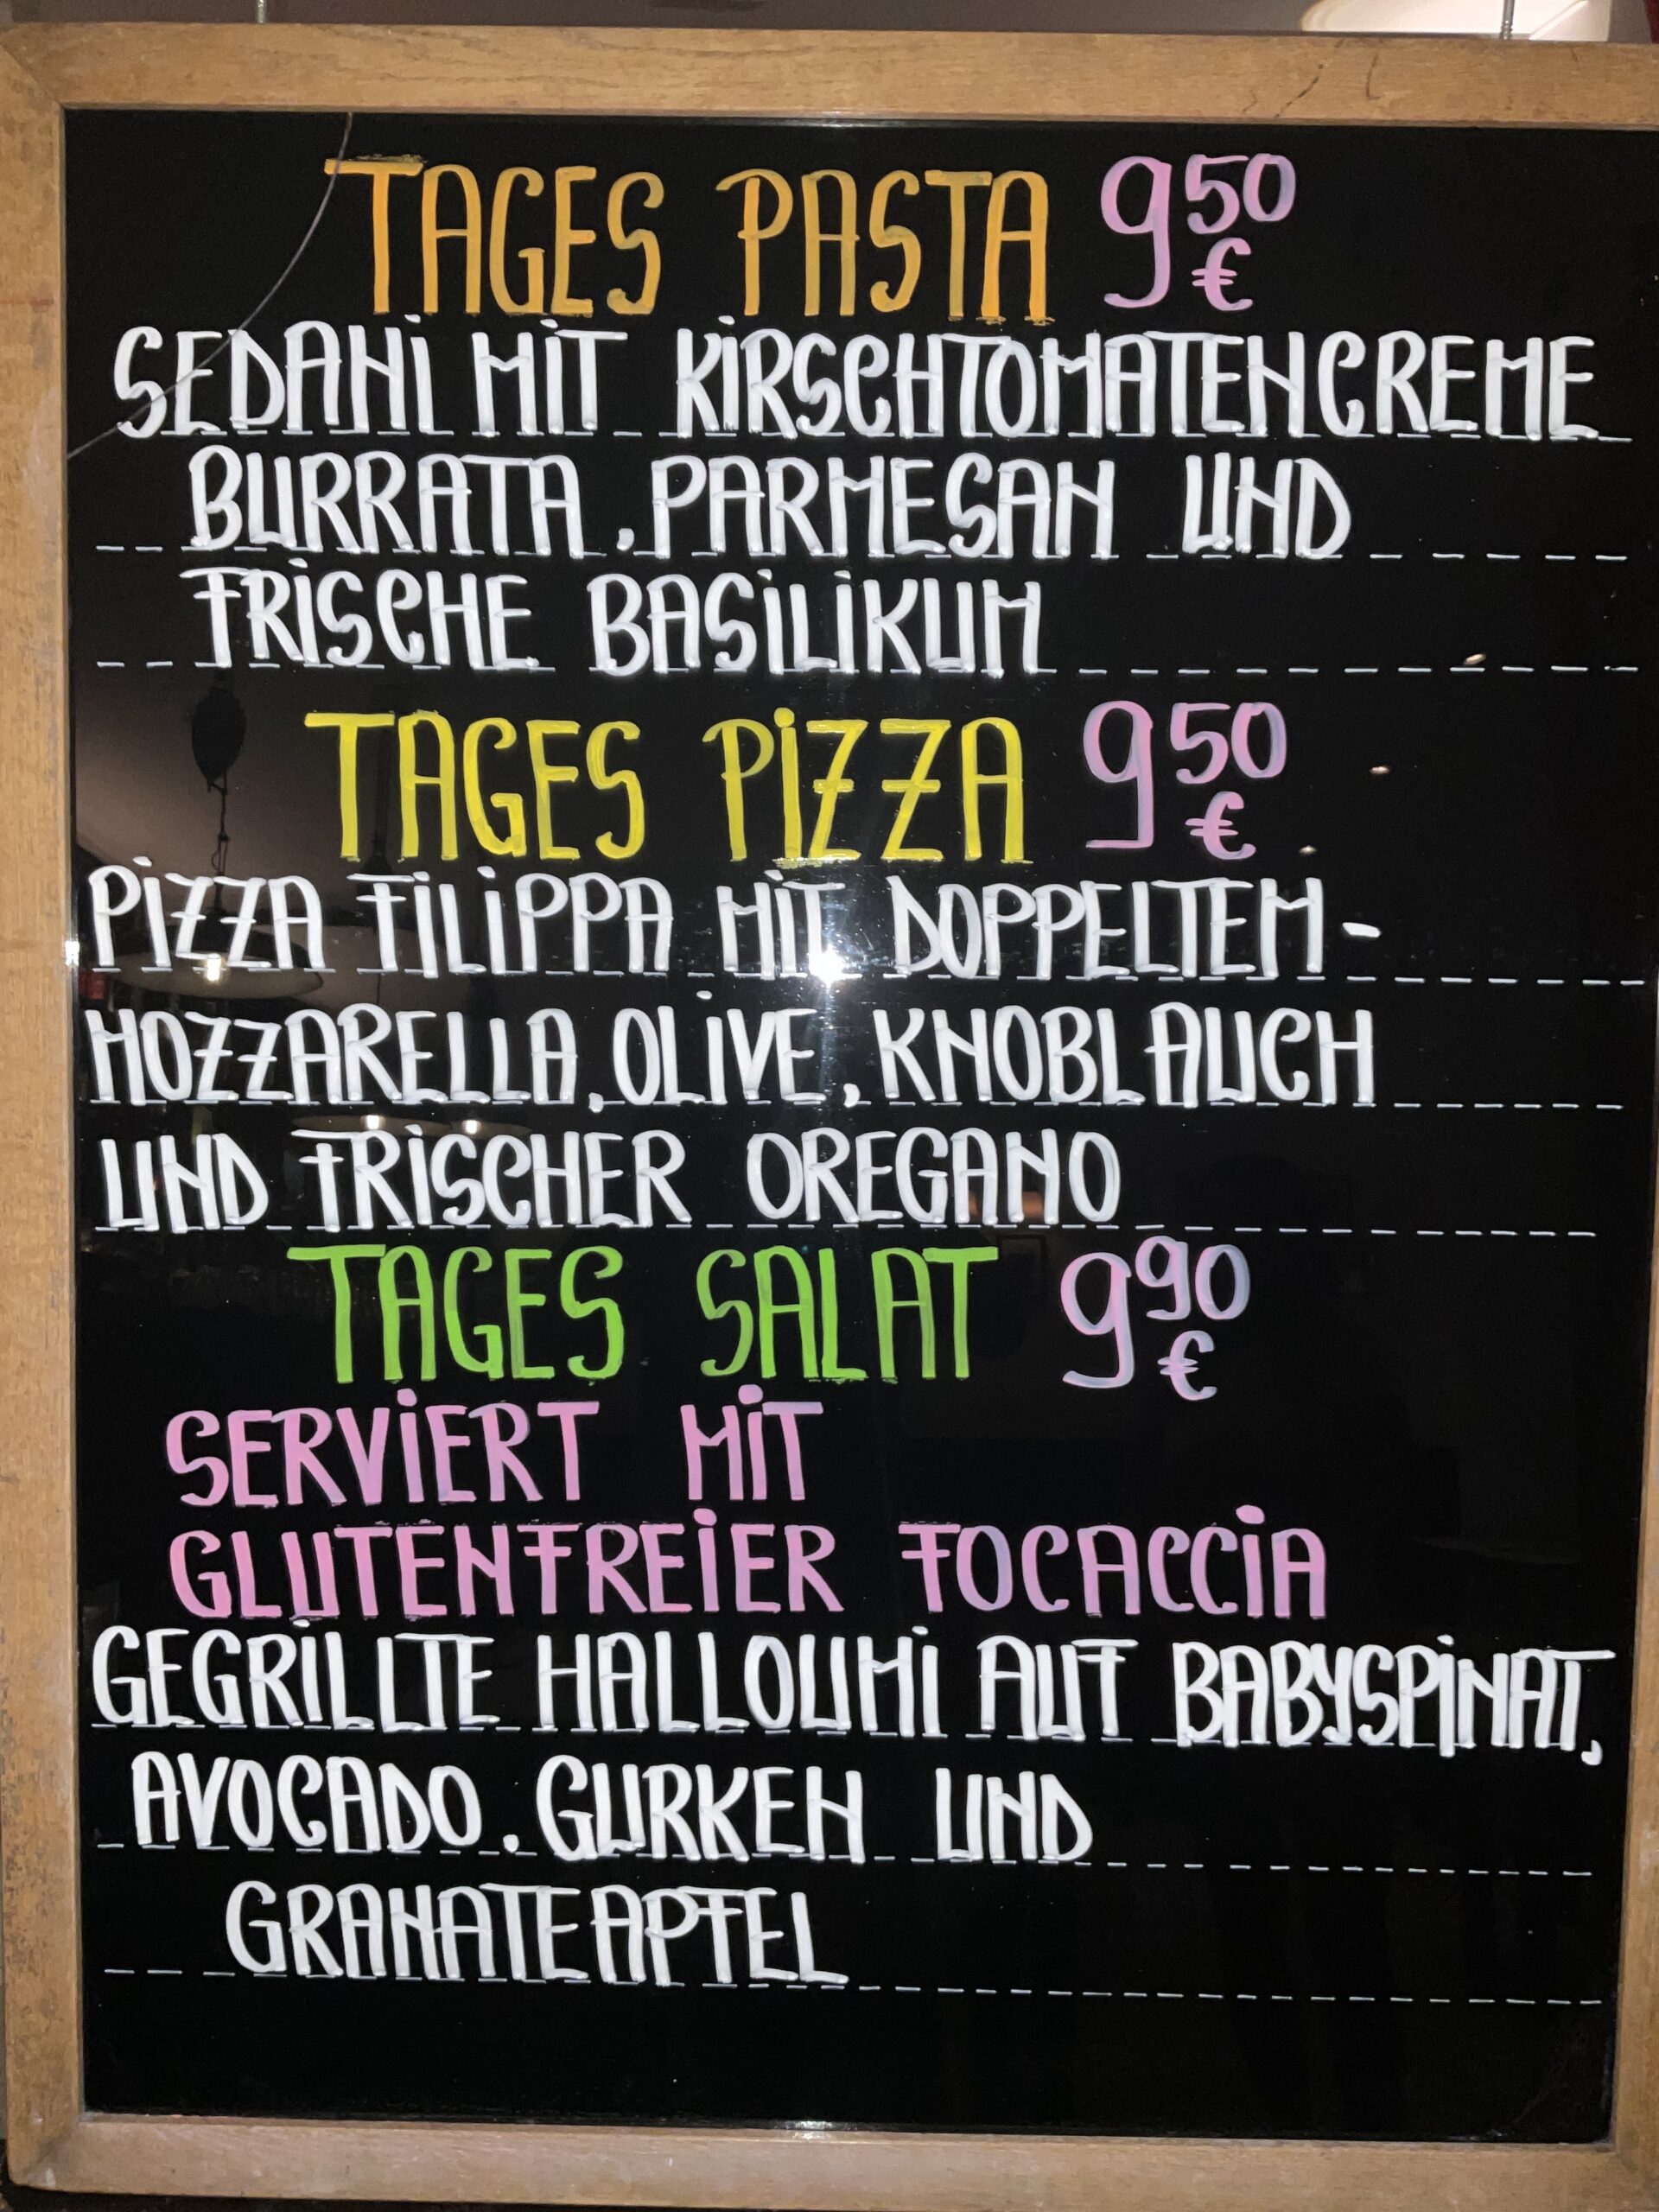 TAGES PASTA 9,50 €
SEDANI MIT KIRSCHTOMATENCREME
BURRATA, PARMESAN UND
FRISCHE BASILIKUM
TAGES PIZZA 9,50 €
PIZZA FILIPPA MIT DOPPELTEM-
MOZZARELLA, OLIVE, KNOBLAUCH
UND FRISCHER OREGANO
TAGES SALAT 9,90 €
SERVIERT MIT
GLUTENFREIER FOCACCIA
GEGRILLTE HALLOUMI AUF BABYSPINAT,
AVOCADO, GURKEN UND
GRANATEAPFEL